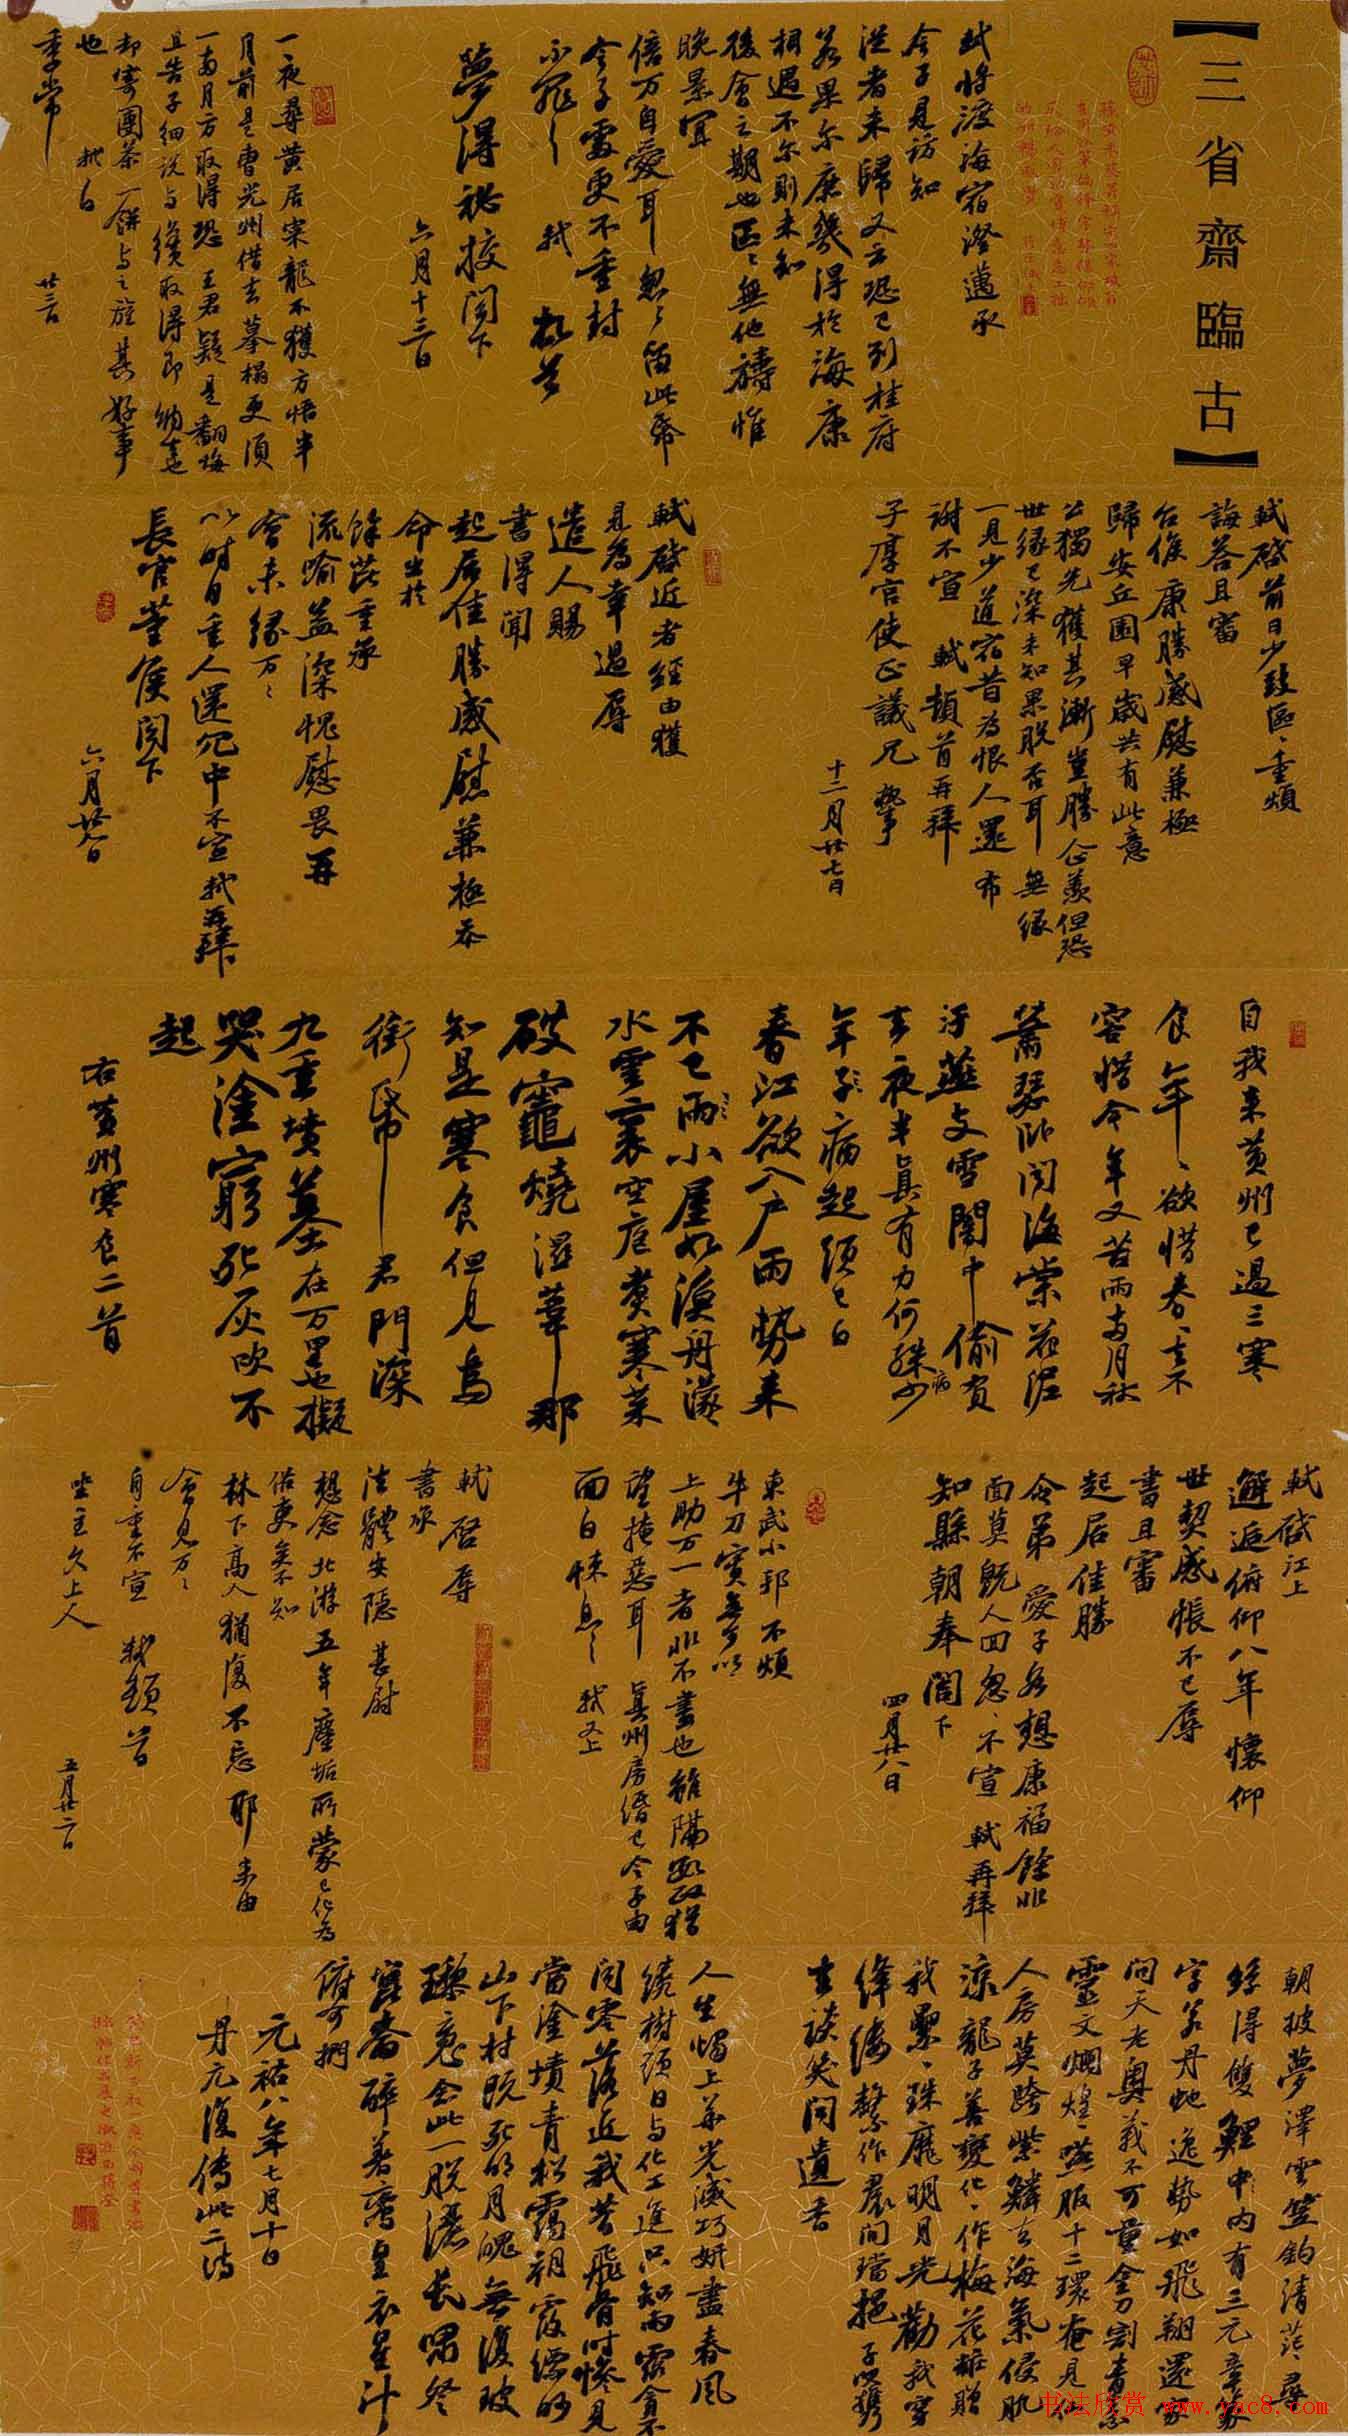 【三省齋臨古】
軾將渡海宿澄邁承
令子見訪知
從者未歸又云恐已到桂府
若果尔庶幾得於海康
相遇不尔則未知
後會之期也區々無他禱惟
晚景宜
倍万自愛耳忽々留此帋
令子處更不重封
不罪々 軾 頓首
夢得祕挍閤下
六月十三日
一夜尋黃居寀龍不獲方悟半
月前是曹光州借去摹榻更須
一兩月方取得恐王君疑是翻悔
且告子細說与纔取得即納去也
却寄團茶一餅与之旌其好事
也 軾白
季常 廿三日
軾啟前日少致區々重煩
誨答且審
台候康勝感慰兼極
歸安丘園早歲共有此意
公獨先獲其漸豈勝企羨但恐
世緣已深未知果脫否耳無緣
一見少道宿昔為恨人還布
謝不宣 軾頓首再拜
子厚宮使正議兄執事
十二月廿七日
軾啟近者經由獲
見為幸過辱
遣人賜
書得聞
起居佳勝感慰兼極忝
命出於
餘芘重承
流喻益深愧慰畏再
會未緣万々
以時自重人還冗中不宣 軾再拜
長官董侯閤下
六月廿八日
自我来黃州已過三寒
食年々欲惜春々去不
容惜今年又苦雨兩月秋
蕭瑟臥聞海棠花泥
汙燕支雪闇中偷負
去夜半真有力何殊少
年子病起頭已白
春江欲入戶雨勢来
不已雨小屋如漁舟濛々
水雲裏空庖煑寒菜
破竈燒濕葦那
知是寒食但見烏
銜帋君門深
九重墳墓在万里也擬
哭塗窮死灰吹不
起
右黃州寒食二首
軾啟江上
邂逅俯仰八年懷仰
世契感悵不已辱
書且審
起居佳勝
令弟愛子各想康福餘非
面莫既人回忽々不宣 軾再拜
知縣朝奉閤下
四月廿八日
東武小邦不煩
牛刀實無可以
上助万一者非不盡也雖隔數政猶
望掩惡耳真州房緡已令子由
面白悚息々 軾又上
軾啓辱
書承
法體安隱甚慰
想念北游五年塵垢所蒙已化為
俗吏矣不知
林下高人猶復不忘耶未由
會見万々
自重不宣 軾頓首
坐主久上人
五月廿二日
朝披夢澤雲笠釣清茫々尋
絲得雙鯉中內有三元章篆
字若丹虵逸勢如飛翔還家
問天老奧義不可量金刀割青素
靈文爛煌々嚥服十二環奄見仙
人房莫跨紫鱗去海氣侵肌
涼龍子善變化々作梅花妝贈
我纍々珠靡々明月光勸我穿
絳縷繫作裙間璫挹子以攜
去談笑聞遺香
人生燭上華光滅巧妍盡春風
繞樹頭日与化工進只知雨露貪不
聞零落近我昔飛骨時慘見
當塗墳青松靄朝霞縹緲
山下村既死明月魄無復玻
瓈魂念此一脫灑長嘯祭
崑崙醉着鸞皇衣星斗
俯可捫
元祐八年七月十日
丹元復傳此二詩
书法欣赏 www.yac8.com